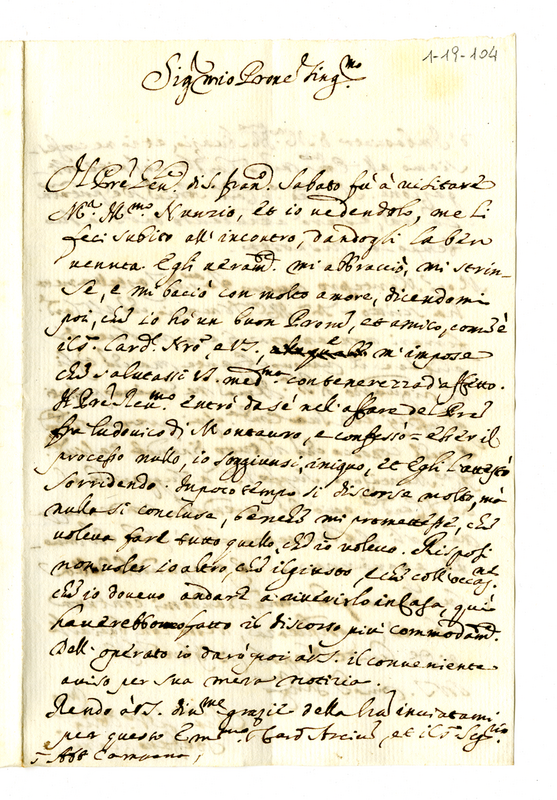 1-19-104
Sig.r mio Prone Sing.mo
Il Pre Gen. di S. Fran.o Sabato fù à visitare
M.r Ill.mo Nunzio, et io vedendolo, me li
feci subito all'incontro, dandogli la ben
venuta. Egli veram.te mi abbracciò, mi strin-
se, e mi baciò con molto amore, dicendomi
poi, che io hò un buon Prone, et amico, com'è
il S. Card. Nro, e V.S., m'impose
che salutassi V.S. med.ma con tenerezza d'affetto.
Il Pre Gen.mo entrò da sé nell'affare del Pre
fra Ludovico di Montauro, e confessò = esser il
processo nullo, io soggiunsi, iniquo, et Egli l'attestò
sorridendo. In poco tempo si discorse molto, mà
nulla si concluse, benche mi promettesse, che
voleva fare tutto quello, che io volevo. Risposi
non voler io altro, che il giusto, e che coll'occas.ne
che io dovevo andare a riverirlo in Casa, qui
haverebbomo fatto il discorso più commodam.te
Dell'operato io darò poi à V.S. il conveniente
aviso per sua mera notizia.
Rendo à V.S. div.me grazie della inviatami
per questo Em.mo Card. et il S.
S. Abb. Campana,